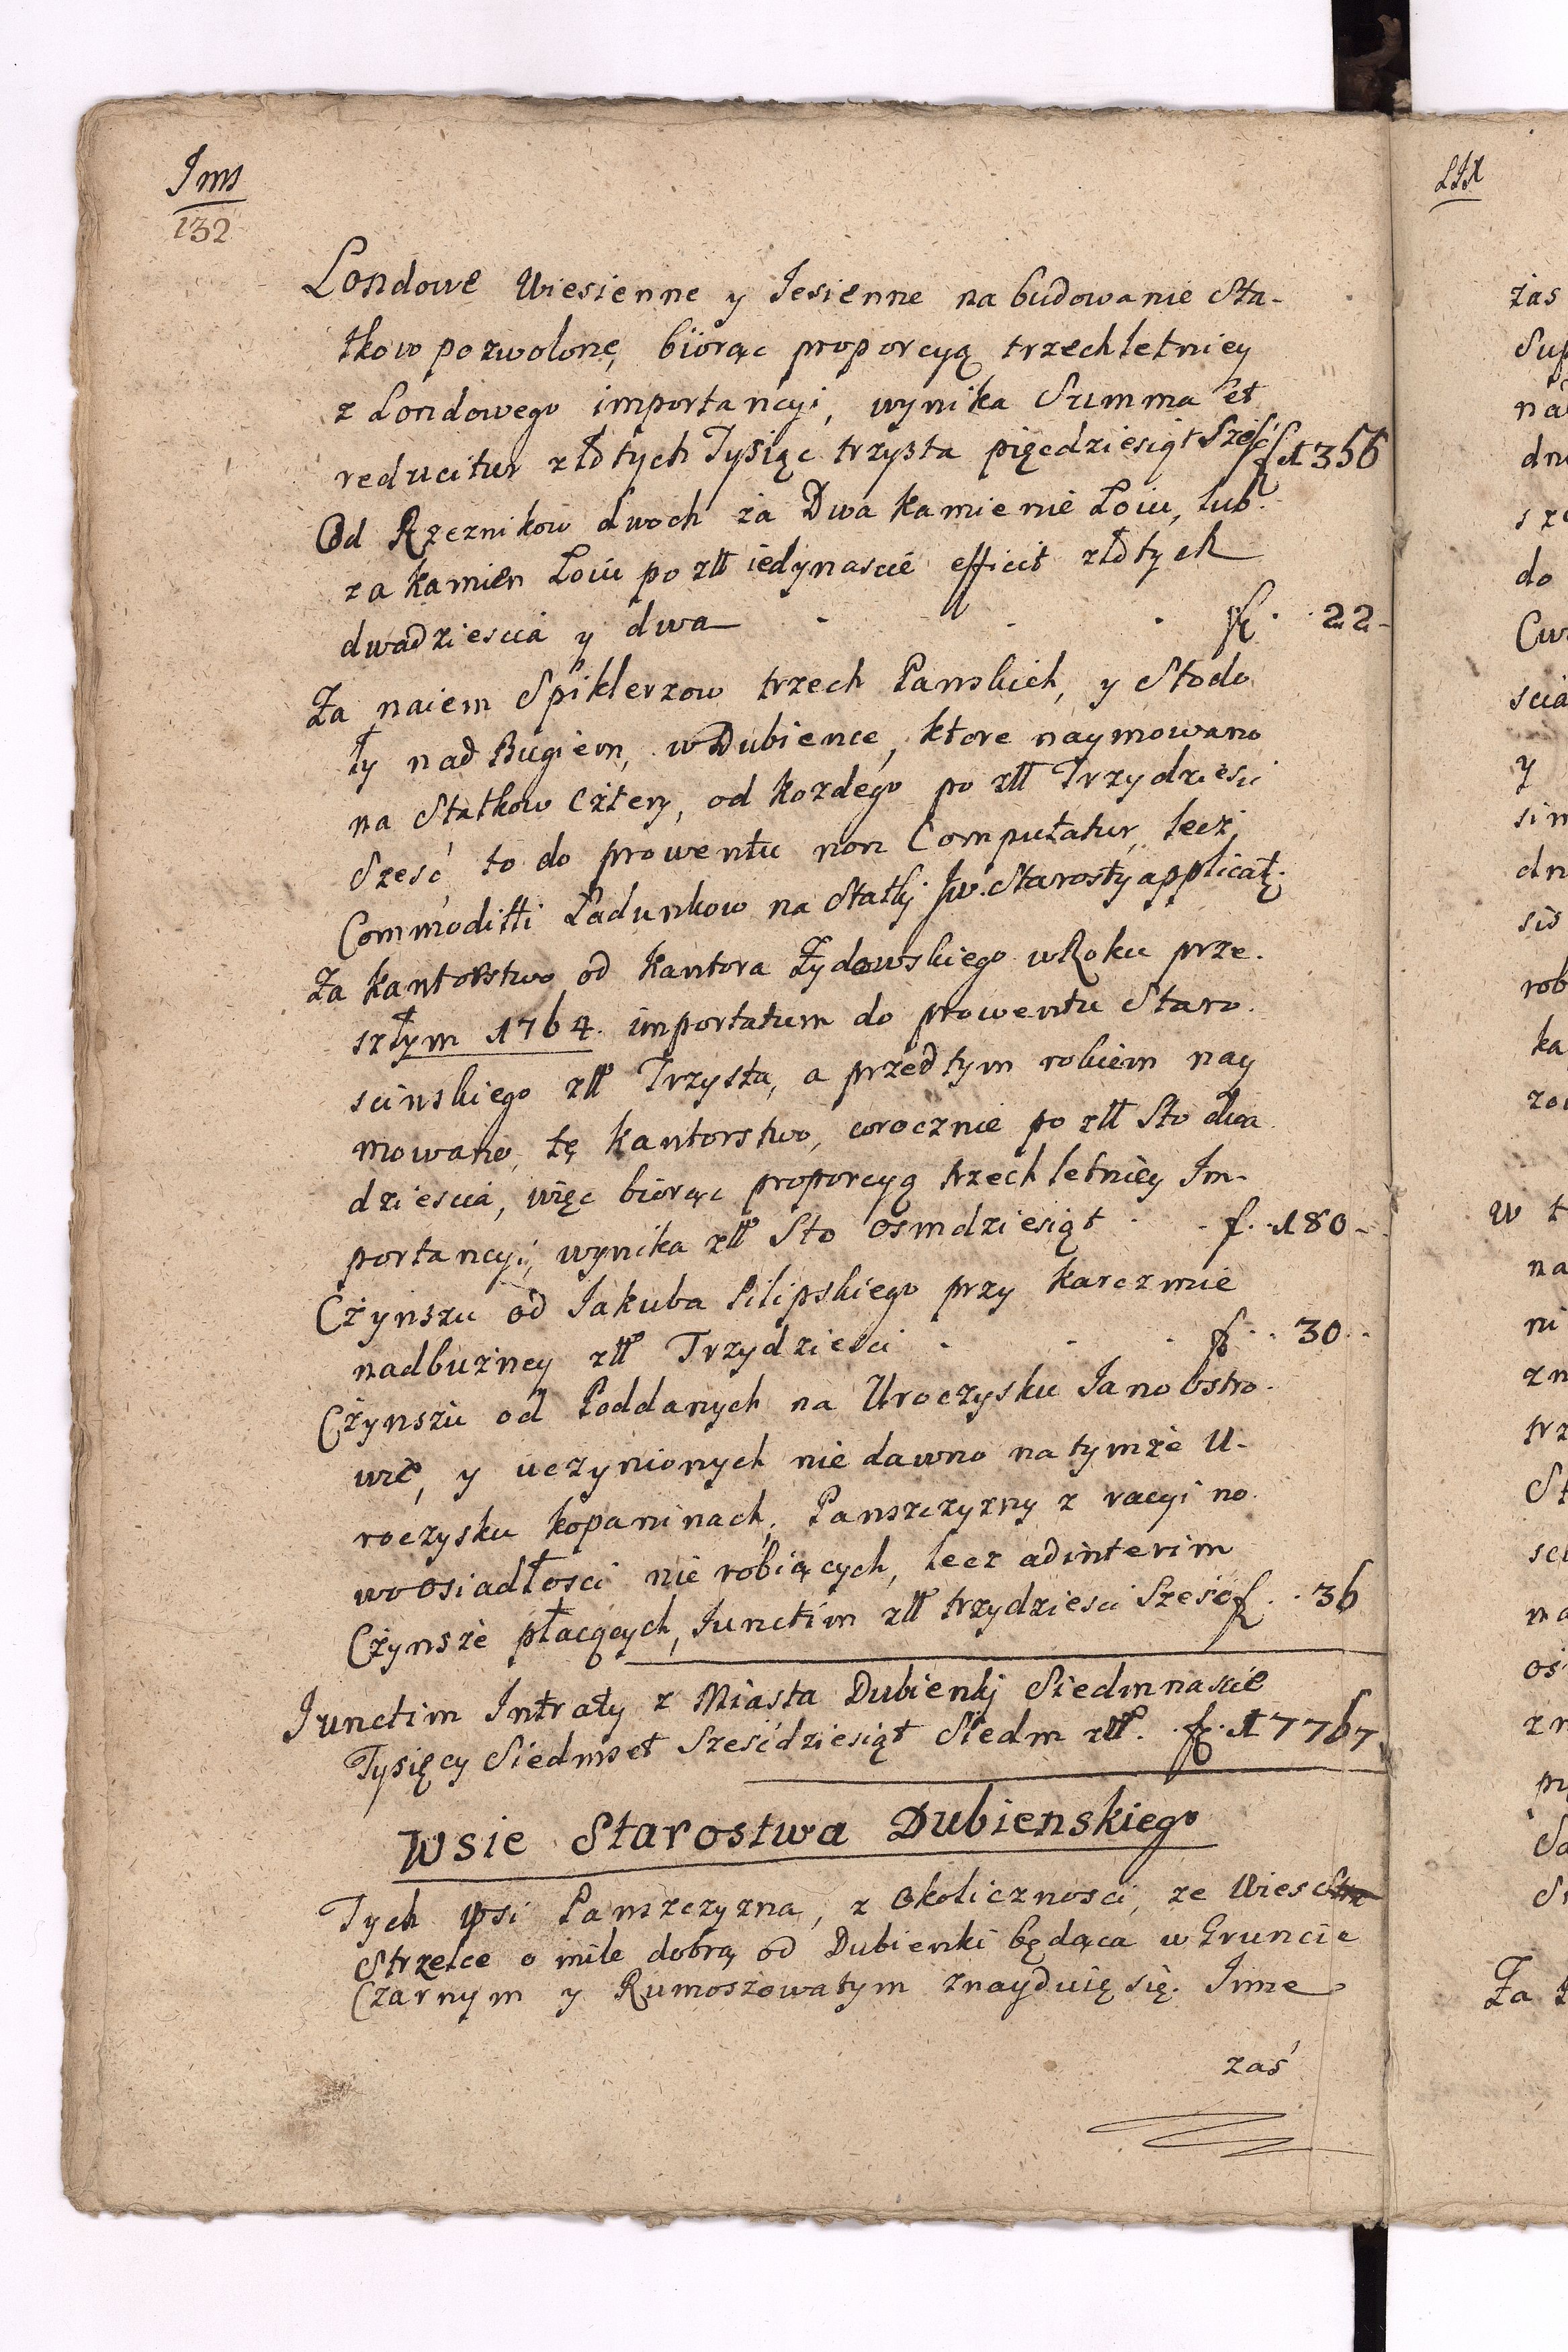 Ims
132
Londowe Wiesienne y Jesienne na budowanie Sta-
tkow pozwolone, biorąc proporcyą trzechletniey
z Londowego importancyi, wynika Summa et
reducitur złotych Tysiąc trzysta pięcdziesiąt Sześć f. 1356
Od Rzeznikow dwoch za Dwa kamienie Łoiu, lub
za kamien Łoiu po złł iedynascie efficit złotych
dwadziescia y dwa - - - f. 22-
Za naiem Spiklerzow trzech Panskich, y Stodo
ły nad Bugiem, w Dubience, ktore naymowano
na Statkow cztery, od kożdego po złł Trzydziesci
Sześć to do prowentu non Computatur, lecz
Commoditti Ładunkow na Statki Jw. Starosty applicat.
Za kantorstwo od kantora Żydowskiego w Roku prze.
szłym 1764. importatum do prowentu Staro.
scinskiego złł Trzysta, a przedtym rokiem nay
mowano, tę kantorstwo, corocznie po złł Sto dwa
dziescia, więc biorąc proporcyą trzechletniey Im-
portancyi, wynika złł Sto osmdziesiąt - - f. 180-
Czynszu od Jakuba Pilipskiego przy karczmie
nadbużney złł Trzydziesci - - - f. 30.
Czynszu od Poddanych na Uroczysku Janobstro.
wie, y uczynionych nie dawno na tymże U-
roczysku kopaninach, Panszczyzny z racyi no.
wo osiadłosci nie robiących, lecz ad interim
Czynsze płacących, Junctim złł trzydziesci Sześć f. 36
Junctim Intraty z Miasta Dubienki Siedmnascie
Tysięcy Siedmset Sześćdziesiąt Siedm złł. f. 17767
Wsie Starostwa Dubienskiego
Tych wsi Panszczyzna, z okolicznosci, ze Wies
Strzelce o mile dobrą od Dubienki będąca w Gruncie
Czarnym y Rumoszowatym znayduię się. Inne
zaś
LIX
zas
Sup
na
dn
sz
do
Cw
scia
y
sin
dn
sis
rob
ka
w t
na
ni
zn
trz
St
sci
ma
oś
zn
Za